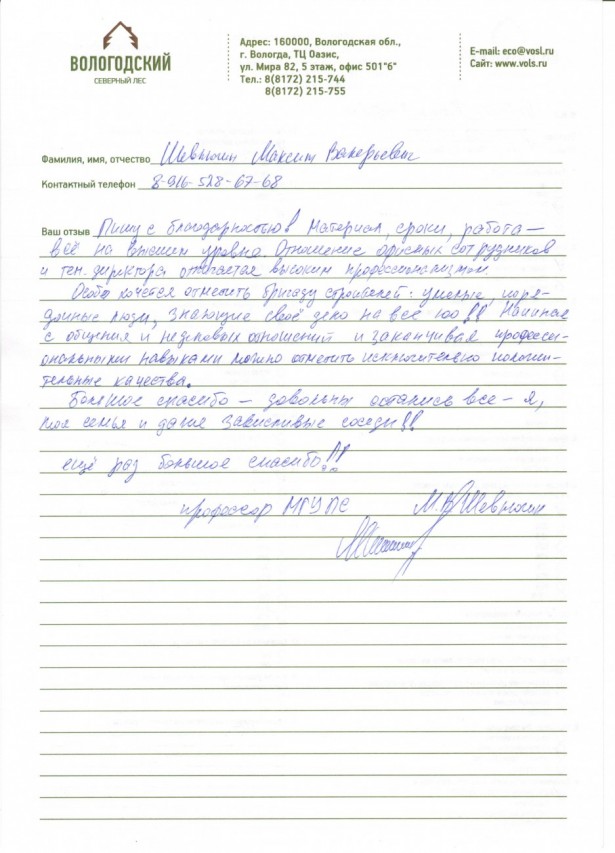 ВОЛОГОДСКИЙ
СЕВЕРНЫЙ ЛЕС
Адрес: 160000, Вологодская обл.,
г. Вологда, ТЦ Оазис,
ул. Мира 82, 5 этаж, офис 501"б"
Тел.: 8(8172) 215-744
8(8172) 215-755
E-mail: eco@vosl.ru
Сайт: www.vols.ru
Фамилия, имя, отчество Шевлюгин Максим Валерьевич
Контактный телефон 8-916-528-67-68
Ваш отзыв Пишу с благодарностью Материал, сроки, работа —
всё на высшем уровне. Отношение офисных сотрудников
и ген. директора отличается высоким профессионализмом.
Особо хочется отметить бригаду строителей: умелые, поря-
дочные люди, знающие своё дело на все 100!! Начиная
с общения и неделовых отношений и заканчивая професси-
ональными навыками можно отметить исключительно положи-
тельные качества.
Большое спасибо — довольны остались все – я,
моя семья и даже завистливые соседи!!
ещё раз большое спасибо!!!
профессор МГУПС М.В. Шевлюгин